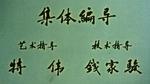 集体编导
艺术指导 技术指导
特伟 钱家骏